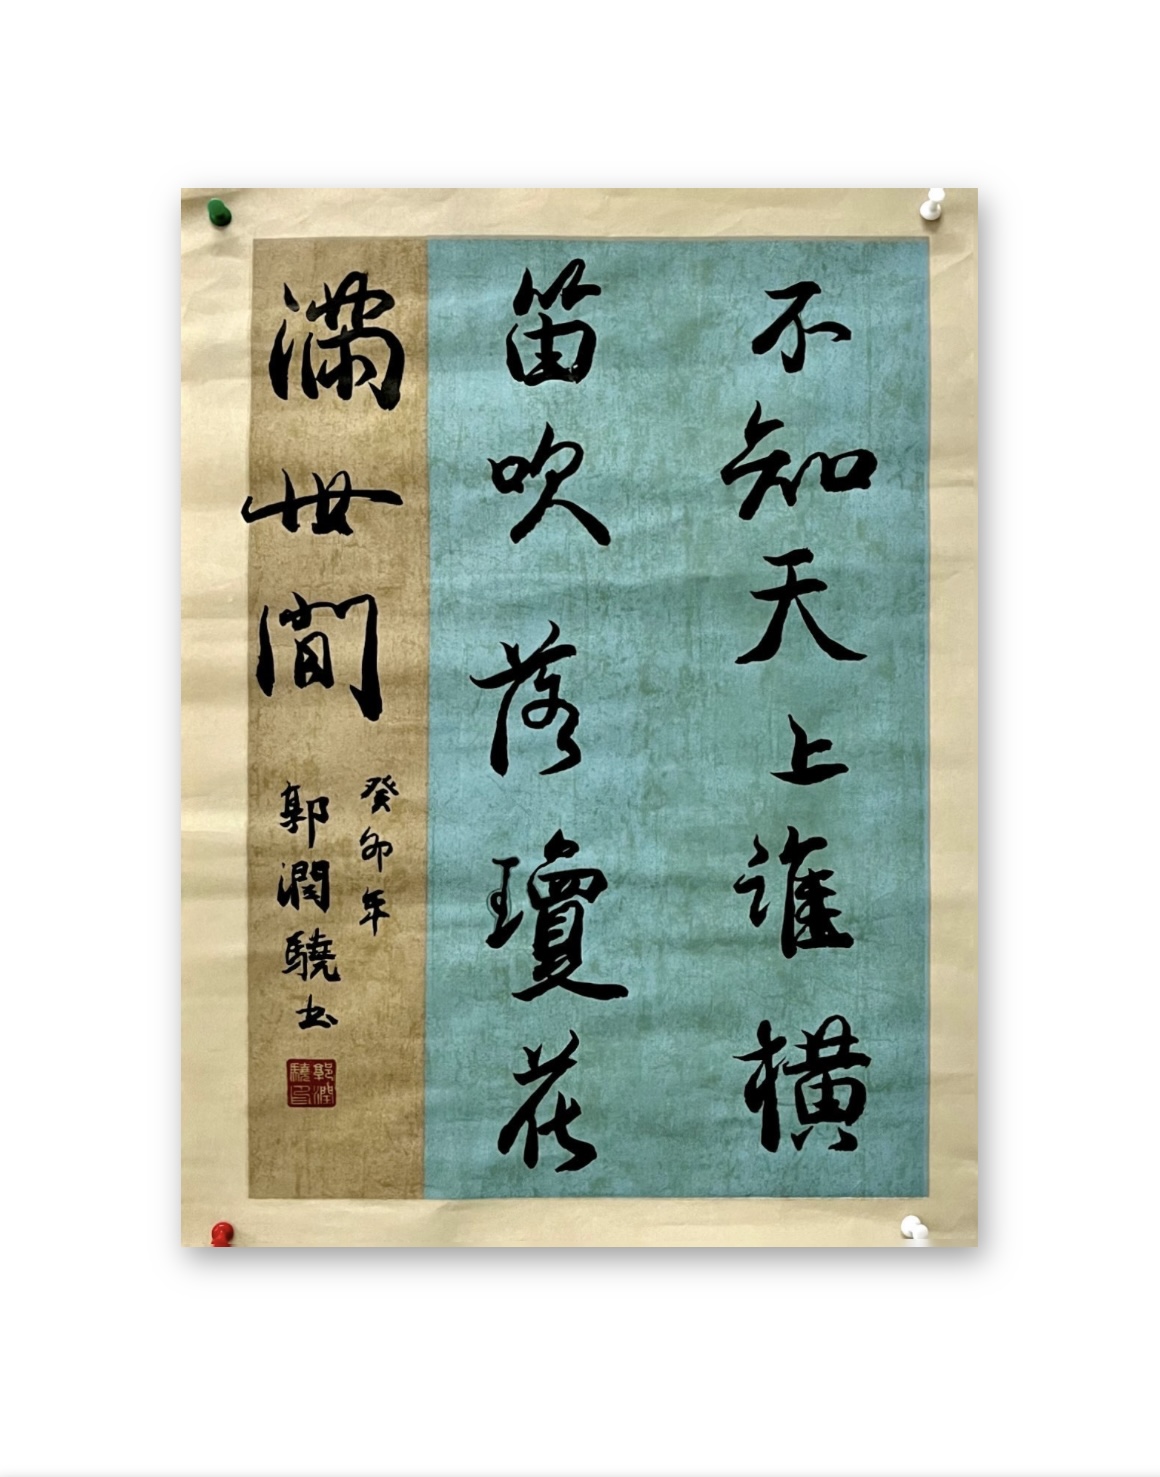 不知天上誰橫
笛吹落瓊花
滿世間
癸卯年
郭潤驍书
郭潤驍印